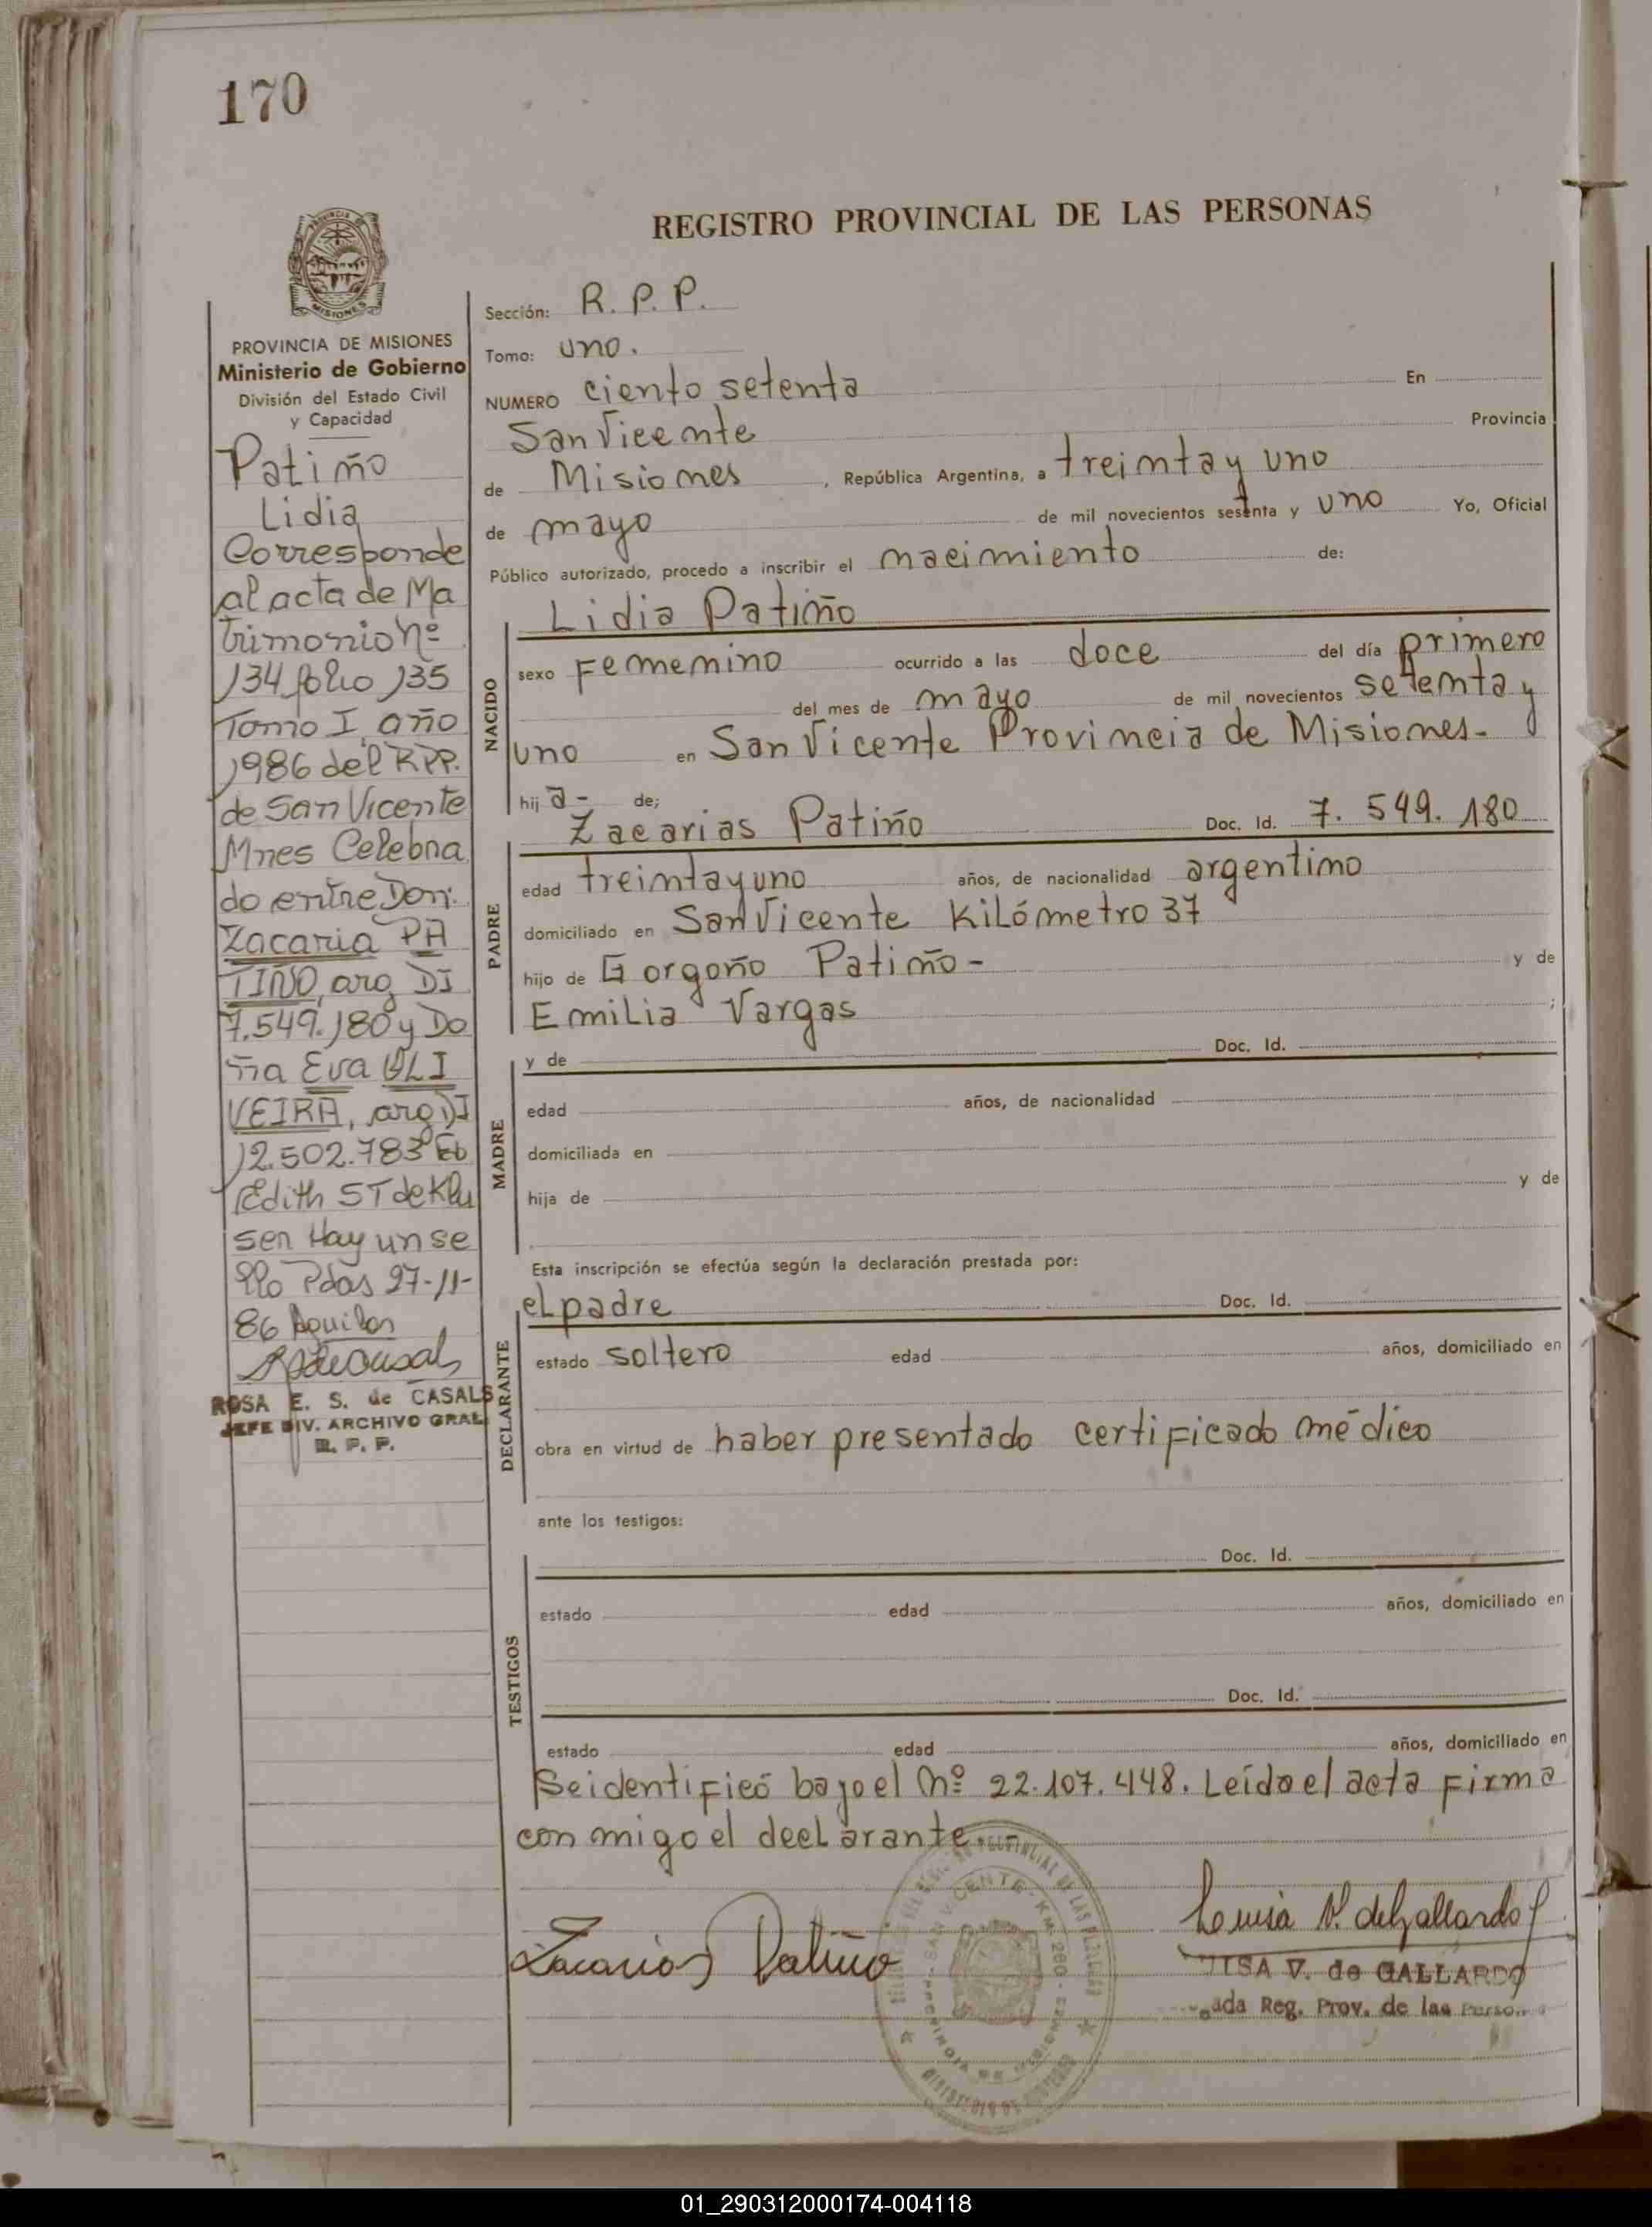 170
REGISTRO PROVINCIAL DE LAS PERSONAS
MISIONES
PROVINCIA DE MISIONES
Ministerio de Gobierno
División del Estado Civil
y Capacidad
Patiño
Lidia
Corresponde
al acta de Ma
trimonio Nº
134 folio 135
Tomo I año
1986 del RPP.
de San Vicente
Mnes Celebra
do entre Don:
Zacaria PA
TIÑO, arg DI
7.549.180 y Do
ña Eva OLI
VEIRA, arg DI
12.502.783 Fb
Edith ST de Klu
sen Hay un se
llo Pdas 27-11-
86 Aguilar
ROSA E. S. de CASALS
JEFE DIV. ARCHIVO GRAL
R. P. P.
Sección: R. P. P.
Tomo: uno.
NUMERO ciento setenta En
San Vicente Provincia
de Misiones, República Argentina, a treinta y uno
de mayo de mil novecientos setenta y uno Yo, Oficial
Público autorizado, procedo a inscribir el nacimiento de:
NACIDO
Lidia Patiño
sexo Femenino ocurrido a las doce del día primero
del mes de mayo de mil novecientos setenta y
uno en San Vicente Provincia de Misiones-
hij a- de;
PADRE
Zacarias Patiño Doc. Id. 7. 549. 180
edad treinta y uno años, de nacionalidad argentino
domiciliado en San Vicente Kilómetro 37
hijo de Gorgoño Patiño- y de
Emilia Vargas ;
MADRE
y de Doc. Id.
edad años, de nacionalidad
domiciliada en
hija de y de
Esta inscripción se efectúa según la declaración prestada por:
DECLARANTE
el padre Doc. Id.
estado soltero edad años, domiciliado en
obra en virtud de haber presentado certificado médico
ante los testigos:
TESTIGOS
Doc. Id.
estado edad años, domiciliado en
Doc. Id.
estado edad años, domiciliado en
Se identificó bajo el Nº 22.107.448. Leído el acta firma
con migo el declarante.-
Zacarias Patiño
Luisa V. de Gallardo
UISA V. de GALLARDO
ada Reg. Prov. de las Perso
SAN VICENTE - KM. 280
01_290312000174-004118